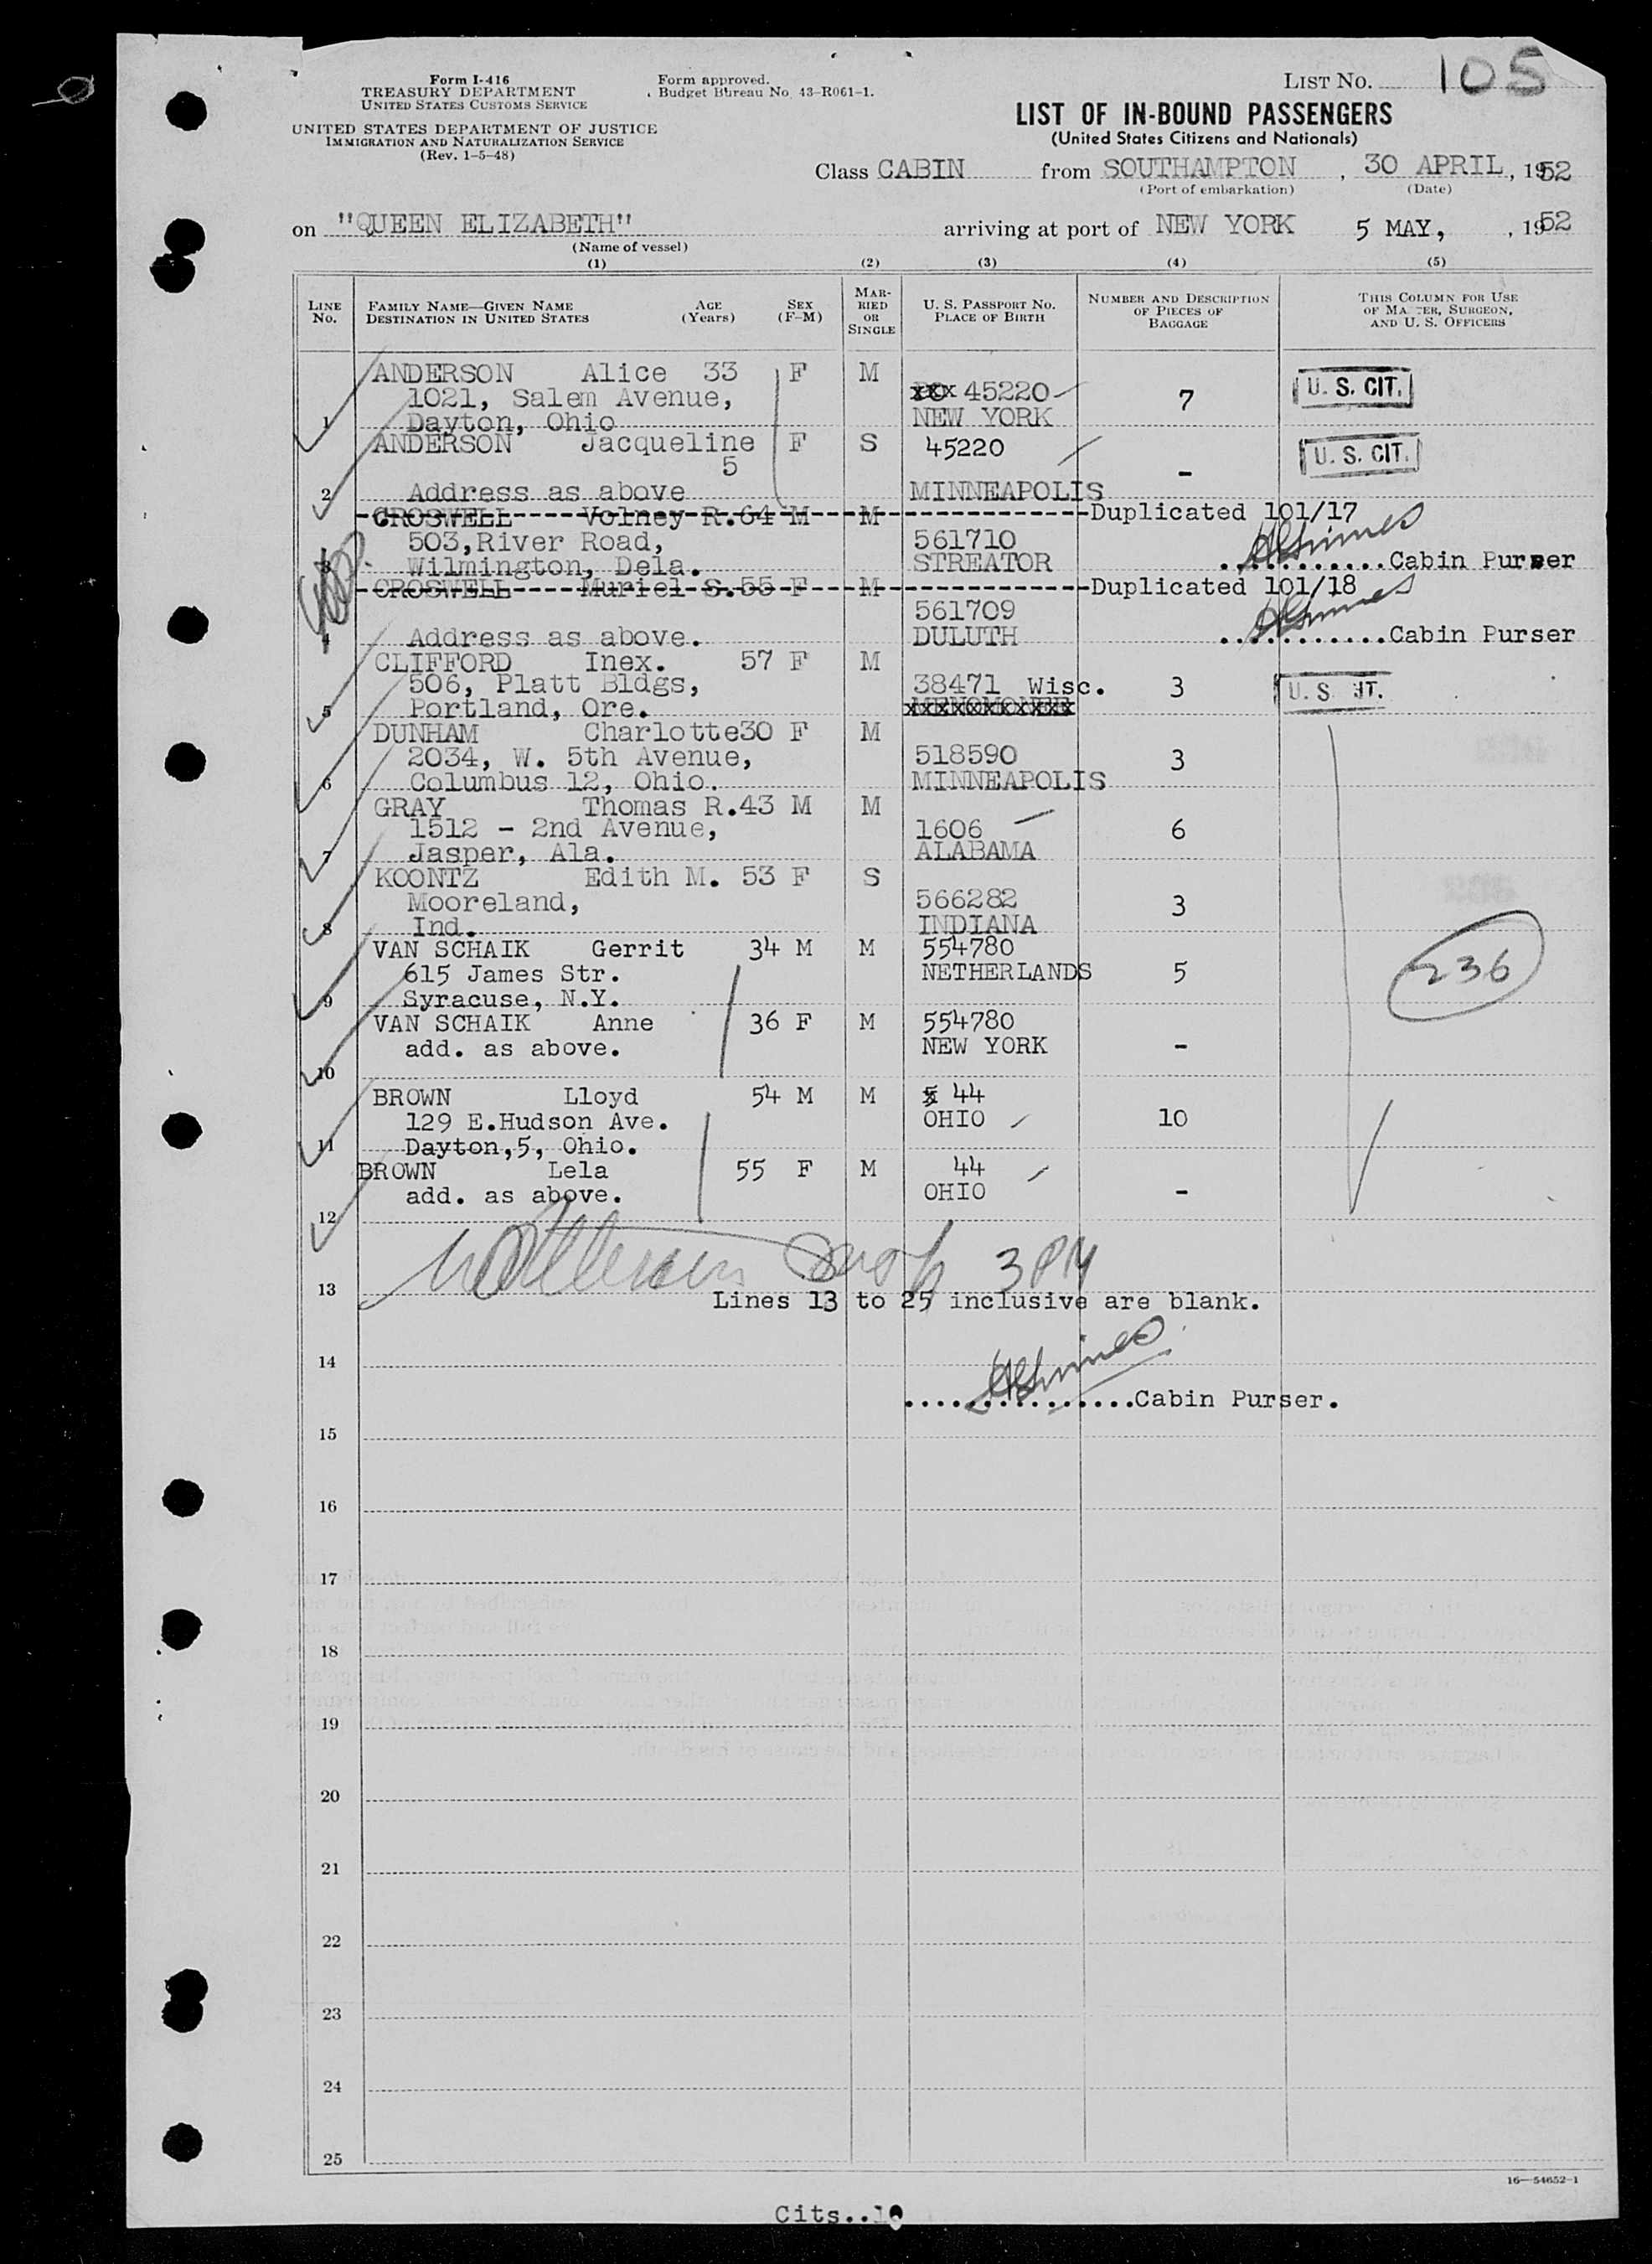 Form I-416
TREASURY DEPARTMENT
UNITED STATES CUSTOMS SERVICE
UNITED STATES DEPARTMENT OF JUSTICE
IMMIGRATION AND NATURALIZATION SERVICE
(Rev. 1-5-48)
Form approved.
Budget Bureau No. 43-R061-1.
LIST No. 105
LIST OF IN-BOUND PASSENGERS
(United States Citizens and Nationals)
Class CABIN from SOUTHAMPTON, 30 APRIL, 1952
(Port of embarkation) (Date)
on "QUEEN ELIZABETH" arriving at port of NEW YORK 5 MAY, , 1952
(Name of vessel)
(1) (2) (3) (4) (5)
LINE No. FAMILY NAME—GIVEN NAME DESTINATION IN UNITED STATES AGE (Years) SEX (F-M) MARRIED OR SINGLE U. S. PASSPORT NO. PLACE OF BIRTH NUMBER AND DESCRIPTION OF PIECES OF BAGGAGE THIS COLUMN FOR USE OF MASTER, SURGEON, AND U. S. OFFICERS
ANDERSON Alice 33 F M
1021, Salem Avenue, 45220 7 U. S. CIT.
1 Dayton, Ohio NEW YORK
ANDERSON Jacqueline F S 45220 U. S. CIT.
5 -
2 Address as above MINNEAPOLIS
CROSWELL Volney R. 64 M M Duplicated 101/17
503, River Road, 561710
3 Wilmington, Dela. STREATOR ...........Cabin Purser
CROSWELL Muriel S. 55 F M Duplicated 101/18
561709
4 Address as above. DULUTH ...........Cabin Purser
CLIFFORD Inex. 57 F M
506, Platt Bldgs, 38471 Wisc. 3 U. S. CIT.
5 Portland, Ore. xxxxxxxxxxx
DUNHAM Charlotte 30 F M
2034, W. 5th Avenue, 518590 3
6 Columbus 12, Ohio. MINNEAPOLIS
GRAY Thomas R. 43 M M
1512 - 2nd Avenue, 1606 6
7 Jasper, Ala. ALABAMA
KOONTZ Edith M. 53 F S
Mooreland, 566282 3
8 Ind. INDIANA
VAN SCHAIK Gerrit 34 M M 554780
615 James Str. NETHERLANDS 5 236
9 Syracuse, N.Y.
VAN SCHAIK Anne 36 F M 554780
add. as above. NEW YORK -
10
BROWN Lloyd 54 M M 44
129 E.Hudson Ave. OHIO 10
11 Dayton,5, Ohio.
BROWN Lela 55 F M 44
add. as above. OHIO -
12
3 PM
13
Lines 13 to 25 inclusive are blank.
14
...............Cabin Purser.
15
16
17
18
19
20
21
22
23
24
25
16—54652-1
Cits..10